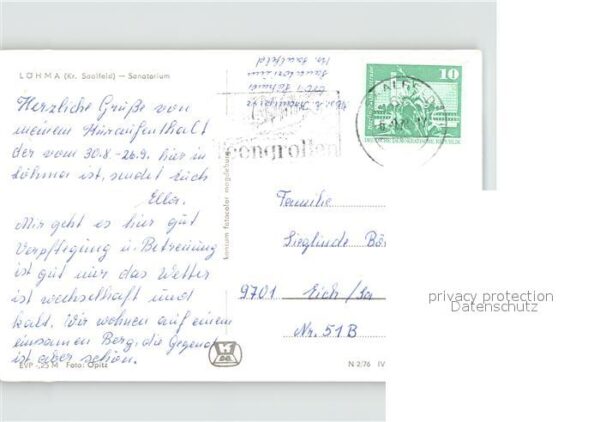 LÖHMA (Kr. Saalfeld) — Sanatorium
Herzliche Grüße von
meinem Kuraufenthalt
der vom 30.8-26.9. hier in
Löhma ist, sendet Euch
Ella.
Mir geht es hier gut
Verpflegung u. Betreuung
ist gut nur das Wetter
ist wechselhaft und
kalt. Wir wohnen auf einem
einsamen Berg, die Gegend
ist aber schön.
EVP -,25 M Foto: Opitz
konsum fotocolor magdeburg
Sanatorium
Kr. Saalfeld
10
DEUTSCHE DEMOKRATISCHE REPUBLIK
Familie
Sieglinde
9701 Eich/Sa
Nr. 51B
N 2/76 IV
privacy protection
Datenschutz